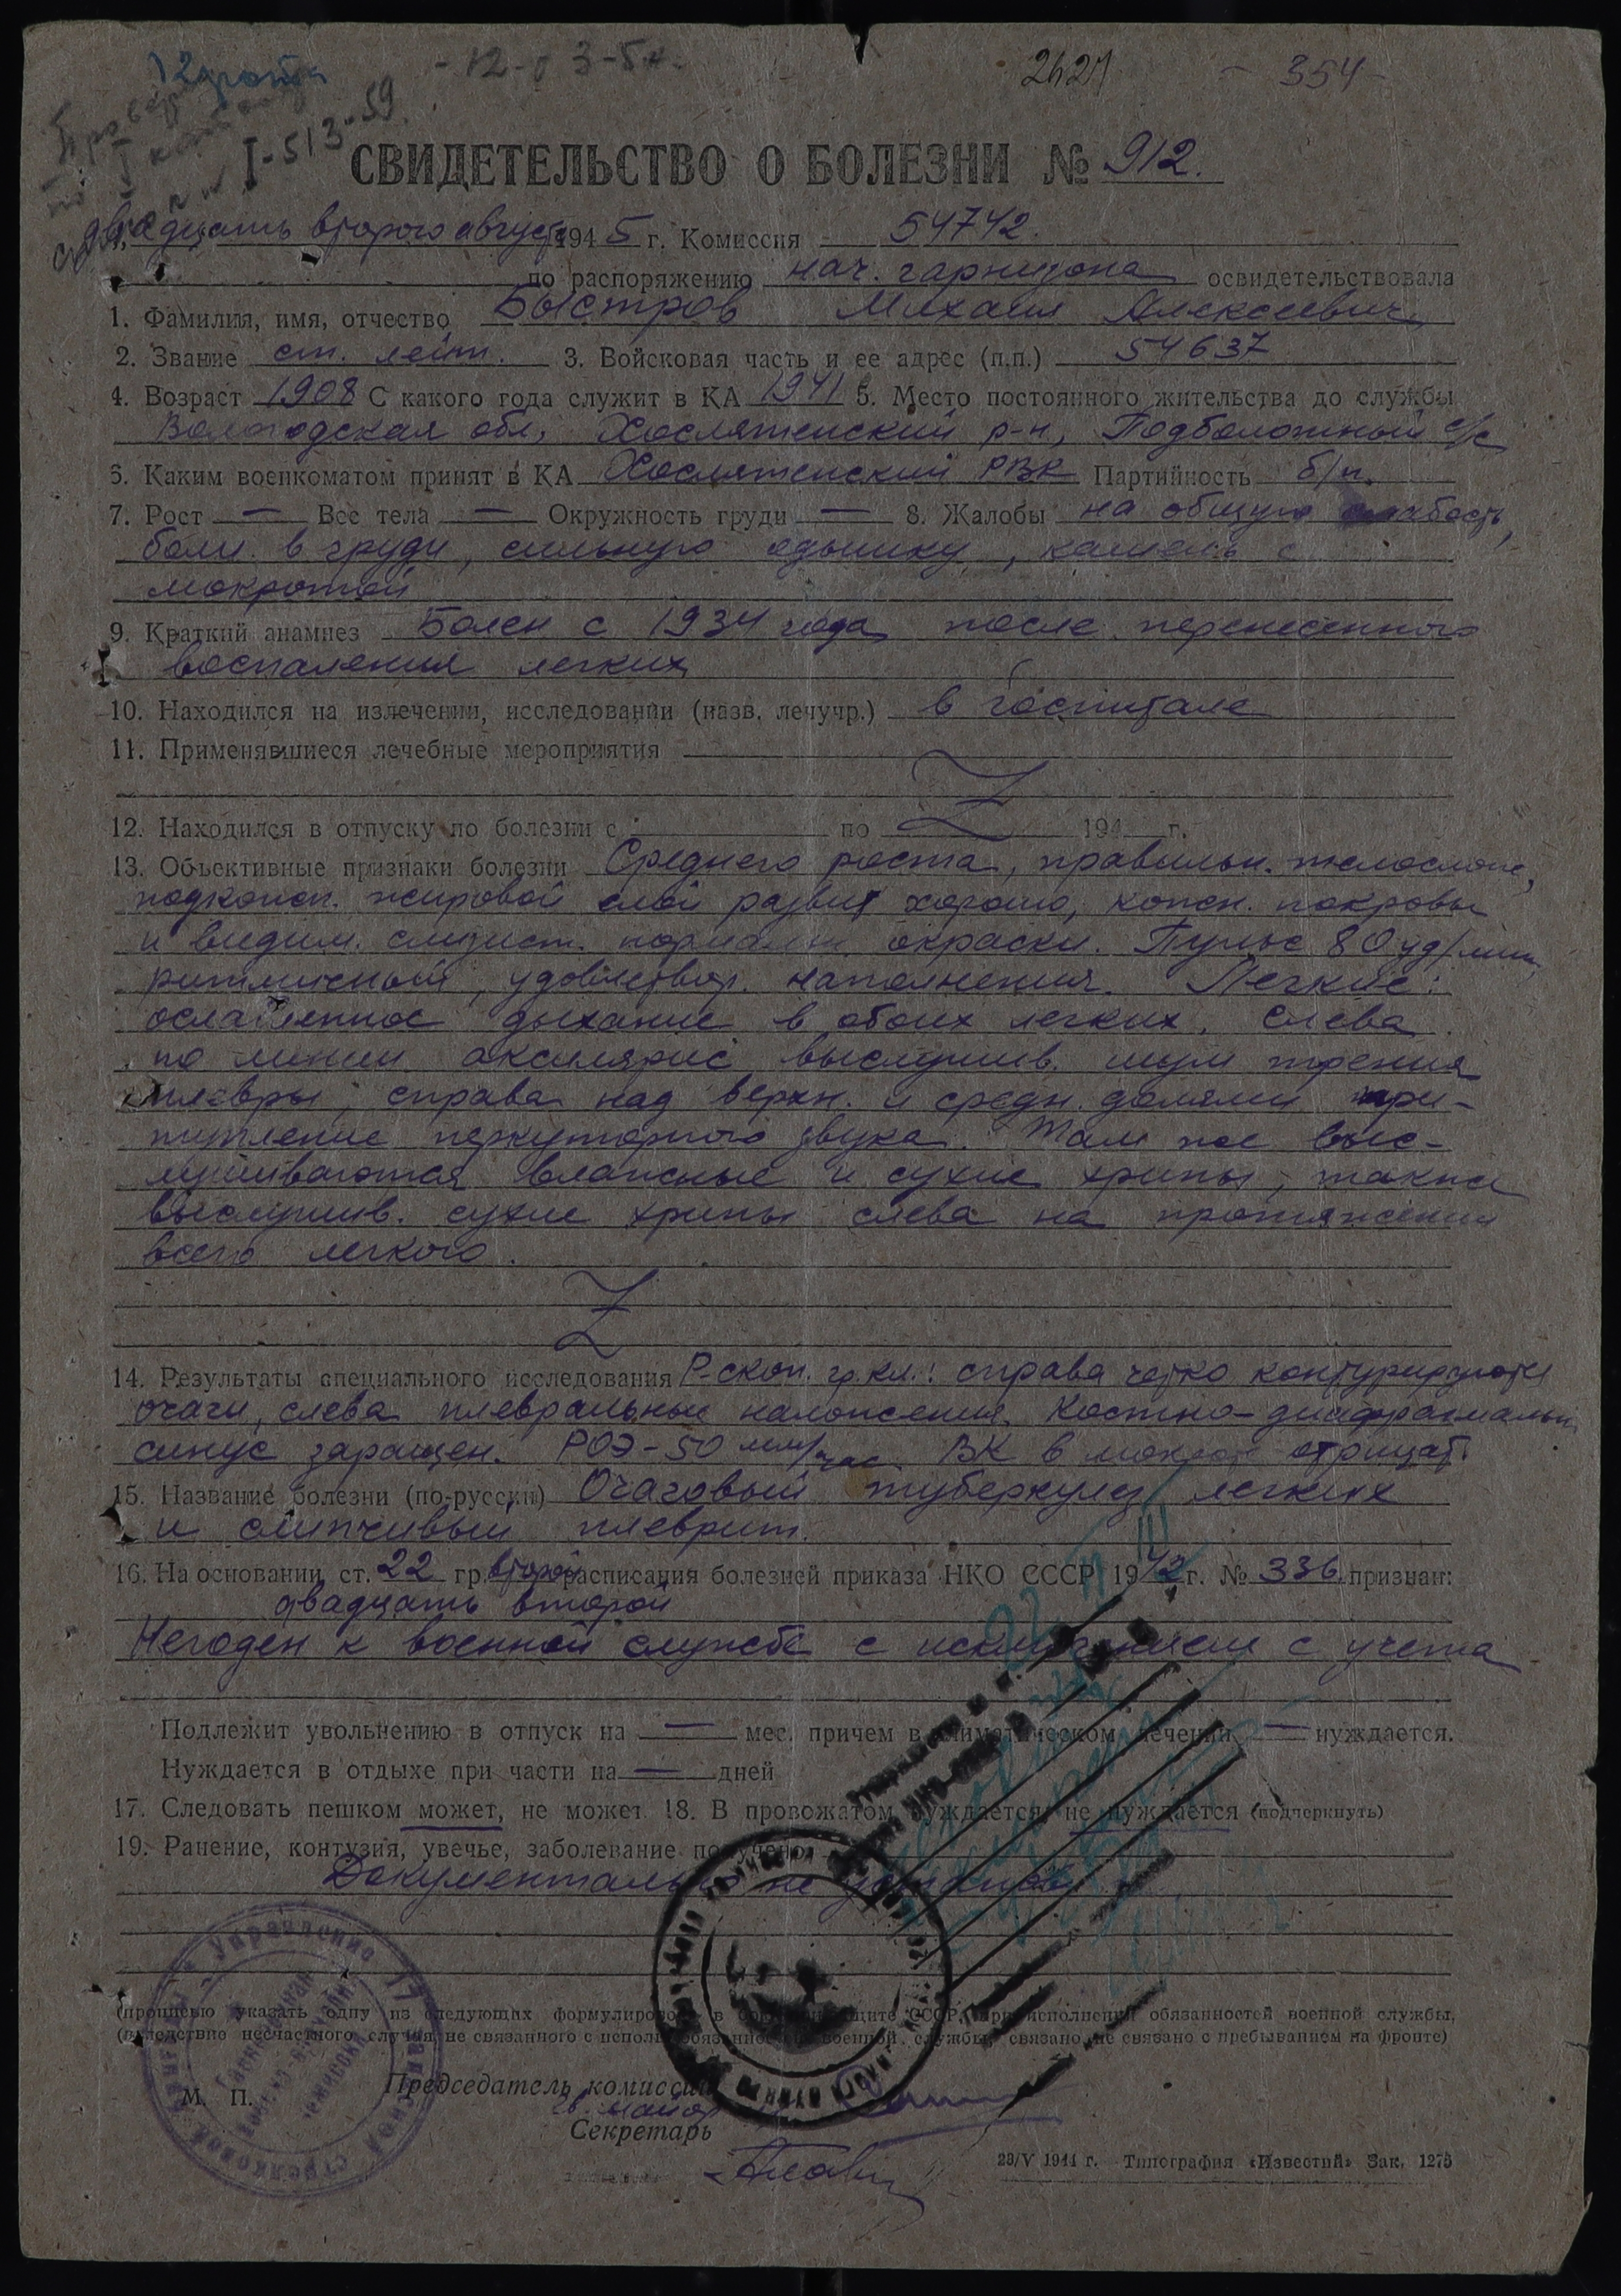 2621 - 354 -
I-513-59
СВИДЕТЕЛЬСТВО О БОЛЕЗНИ № 912.
двадцать второго августа 1945 г. Комиссия 54742.
по распоряжению нач. гарнизона освидетельствовала
1. Фамилия, имя, отчество Быстров Михаил Алексеевич
2. Звание ст. лейт. 3. Войсковая часть и ее адрес (п.п.) 54637
4. Возраст 1908 С какого года служит в КА 1941 5. Место постоянного жительства до службы
Вологодская обл, р-н, Подболотный с/с
6. Каким военкоматом принят в КА РВК Партийность б/п.
7. Рост — Вес тела — Окружность груди — 8. Жалобы на общую слабость,
боли в груди, сильную одышку, кашель с
мокротой
9. Краткий анамнез Болен с 1934 года после перенесенного
воспаления легких
10. Находился на излечении, исследовании (назв. лечучр.) в госпитале
11. Применявшиеся лечебные мероприятия
12. Находился в отпуску по болезни с по 194 г.
13. Объективные признаки болезни Среднего роста, правильн. телослож,
подкожн. жировой слой развит хорошо, кожн. покровы
и видим. слизист. нормальн окраски. Пульс 80 уд/мин,
ритмичный, удовлетвор. наполнения. Легкие:
ослабленное дыхание в обоих легких. Слева
по линии аксилярис выслушив. шум трения
плевры, справа над верхн. и средн. долями при-
тупление перкуторного звука. Там же выс-
лушиваются влажные и сухие хрипы, также
выслушив. сухие хрипы слева на протяжении
всего легкого.
14. Результаты специального исследования Р-скоп. гр. кл.: справа четко контурируются
очаги, слева плевральные наложения. Костно-диафрагмальн
синус заращен. РОЭ-50 мм/час. ВК в мокрот отрицат.
15. Название болезни (по-русски) Очаговый туберкулез легких
и слипчивый плеврит.
16. На основании ст. 22 гр. второй расписания болезней приказа НКО СССР 1942 г. № 336 признан:
двадцать второй
Негоден к военной службе с исключением с учета
Подлежит увольнению в отпуск на — мес. причем в климатическом лечении — нуждается.
Нуждается в отдыхе при части на — дней
17. Следовать пешком может, не может. 18. В провожатом нуждается, не нуждается (подчеркнуть)
19. Ранение, контузия, увечье, заболевание получено
Документально не
(прописью указать одну из следующих формулировок: в бою при защите СССР, при исполнении обязанностей военной службы,
(вследствие несчастного случая не связанного с исполн. обязанностей военной службы, связано, не связано с пребыванием на фронте)
М. П.
Председатель комиссии
гв. майор
Секретарь
23/V 1944 г. Типография «Известий» Зак. 1275